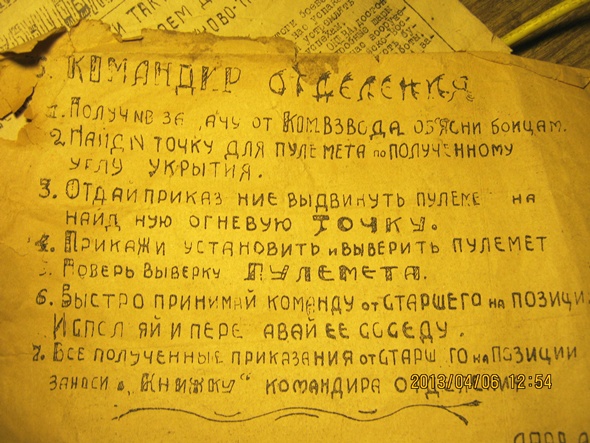 КОМАНДИР ОТДЕЛЕНИЯ
1. ПОЛУЧИВ ЗА АЧУ ОТ КОМВЗВОДА ОБ'ЯСНИ БОЙЦАМ.
2. НАЙДИ ТОЧКУ ДЛЯ ПУЛЕМЕТА ПО ПОЛУЧЕННОМУ
УГЛУ УКРЫТИЯ.
3. ОТДАЙ ПРИКАЗ НИЕ ВЫДВИНУТЬ ПУЛЕМЕ НА
НАЙД НУЮ ОГНЕВУЮ ТОЧКУ.
4. ПРИКАЖИ УСТАНОВИТЬ И ВЫВЕРИТЬ ПУЛЕМЕТ
5. ПОВЕРЬ ВЫВЕРКУ ПУЛЕМЕТА.
6. БЫСТРО ПРИНИМАЙ КОМАНДУ ОТ СТАРШЕГО НА ПОЗИЦИ
ИСПОЛ ЯЙ И ПЕРЕ АВАЙ ЕЕ СОСЕДУ.
7. ВСЕ ПОЛУЧЕННЫЕ ПРИКАЗАНИЯ ОТ СТАРШ ГО НА ПОЗИЦИИ
ЗАНОСИ В „КНИЖКУ“ КОМАНДИРА ОТДЕЛЕНИЯ
2013/04/06 12:54